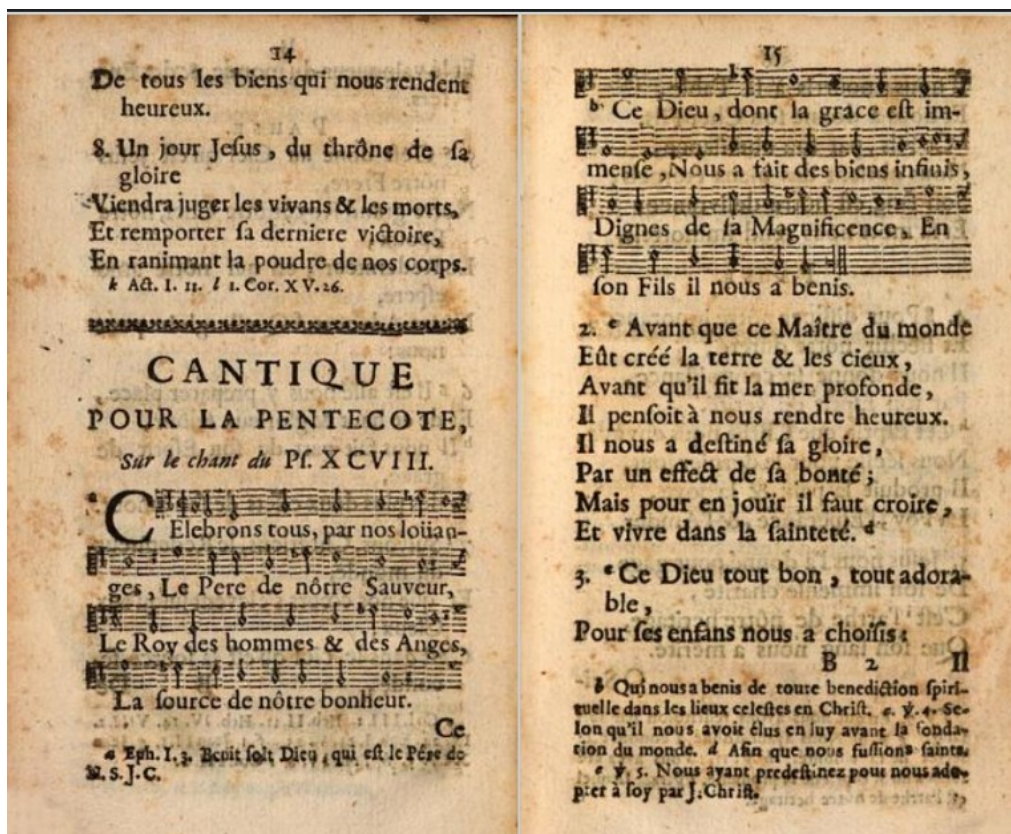 14
De tous les biens qui nous rendent
heureux.
8. Un jour Jesus, du thrône de sa
gloire
Viendra juger les vivans & les morts,
Et remporter sa derniere victoire,
En ranimant la poudre de nos corps.
k Act. I. 11. l 1. Cor. XV. 26.
CANTIQUE
POUR LA PENTECOTE,
Sur le chant du Ps. XCVIII.
a CElebrons tous, par nos loüan-
ges, Le Pere de nôtre Sauveur,
Le Roy des hommes & des Anges,
La source de nôtre bonheur.
Ce
a Eph. I. 3. Benit soit Dieu, qui est le Pére de
N. S. J. C.
15
b Ce Dieu, dont la grace est im-
mense, Nous a fait des biens infinis,
Dignes de sa Magnificence, En
son Fils il nous a benis.
2. c Avant que ce Maître du monde
Eût créé la terre & les cieux,
Avant qu'il fit la mer profonde,
Il pensoit à nous rendre heureux.
Il nous a destiné sa gloire,
Par un effect de sa bonté;
Mais pour en jouïr il faut croire,
Et vivre dans la sainteté. d
3. e Ce Dieu tout bon, tout adora-
ble,
Pour ses enfans nous a choisis:
B 2 Il
b Qui nous a benis de toute benediction spiri-
tuelle dans les lieux celestes en Christ. c. ℣. 4. Se-
lon qu'il nous avoit élus en luy avant la fonda-
tion du monde. d Afin que nous fussions saints.
e ℣. 5. Nous ayant predestinez pour nous ado-
pter à soy par J. Christ.